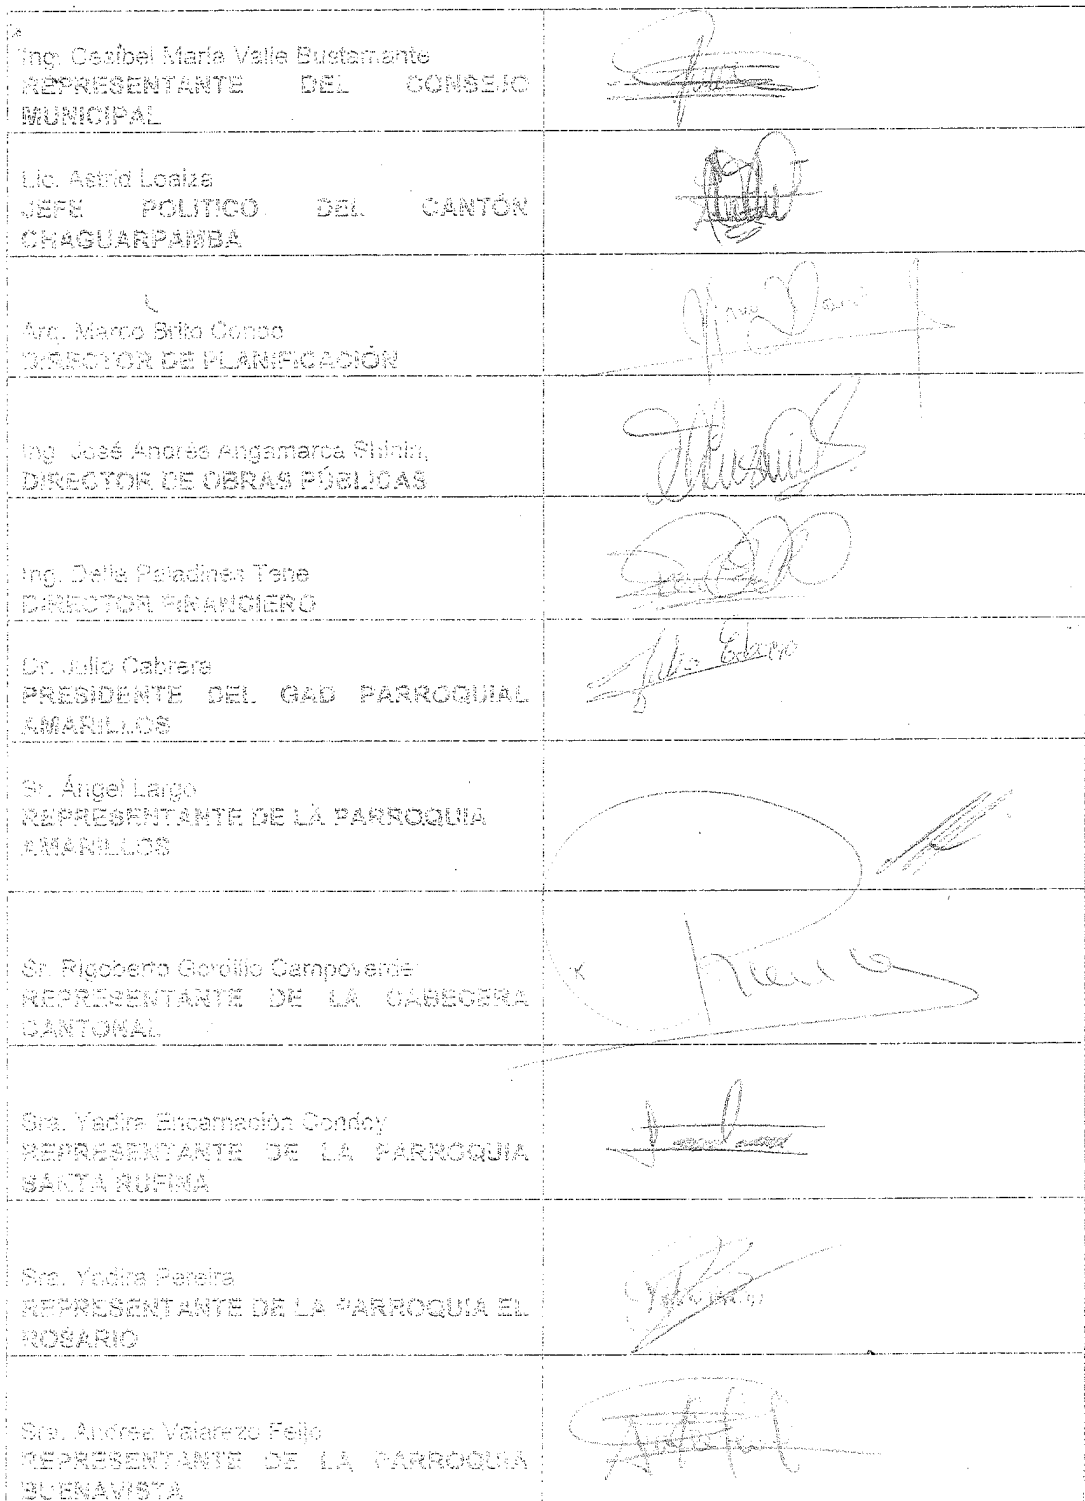 Ing. Cazibel María Valle Bustamante
REPRESENTANTE DEL CONSEJO
MUNICIPAL
Lic. Astrid Loaiza
JEFE POLÍTICO DEL CANTÓN
CHAGUARPAMBA
Arq. Marco Brito
DIRECTOR DE PLANIFICACIÓN
Ing. José Andrés Angamarca Shinin,
DIRECTOR DE OBRAS PÚBLICAS
Ing. Delia Paladines Tene
DIRECTOR FINANCIERO
Dr. Julio Cabrera
PRESIDENTE DEL GAD PARROQUIAL
AMARILLOS
Sr. Ángel Largo
REPRESENTANTE DE LA PARROQUIA
AMARILLOS
Sr. Rigoberto Gordillo Campoverde
REPRESENTANTE DE LA CABECERA
CANTONAL
Sra. Yadira Encarnación Condoy
REPRESENTANTE DE LA PARROQUIA
SANTA RUFINA
Sra. Yadira Pereira
REPRESENTANTE DE LA PARROQUIA EL
ROSARIO
Sra. Andrea Valarezo Feijo
REPRESENTANTE DE LA PARROQUIA
BUENAVISTA